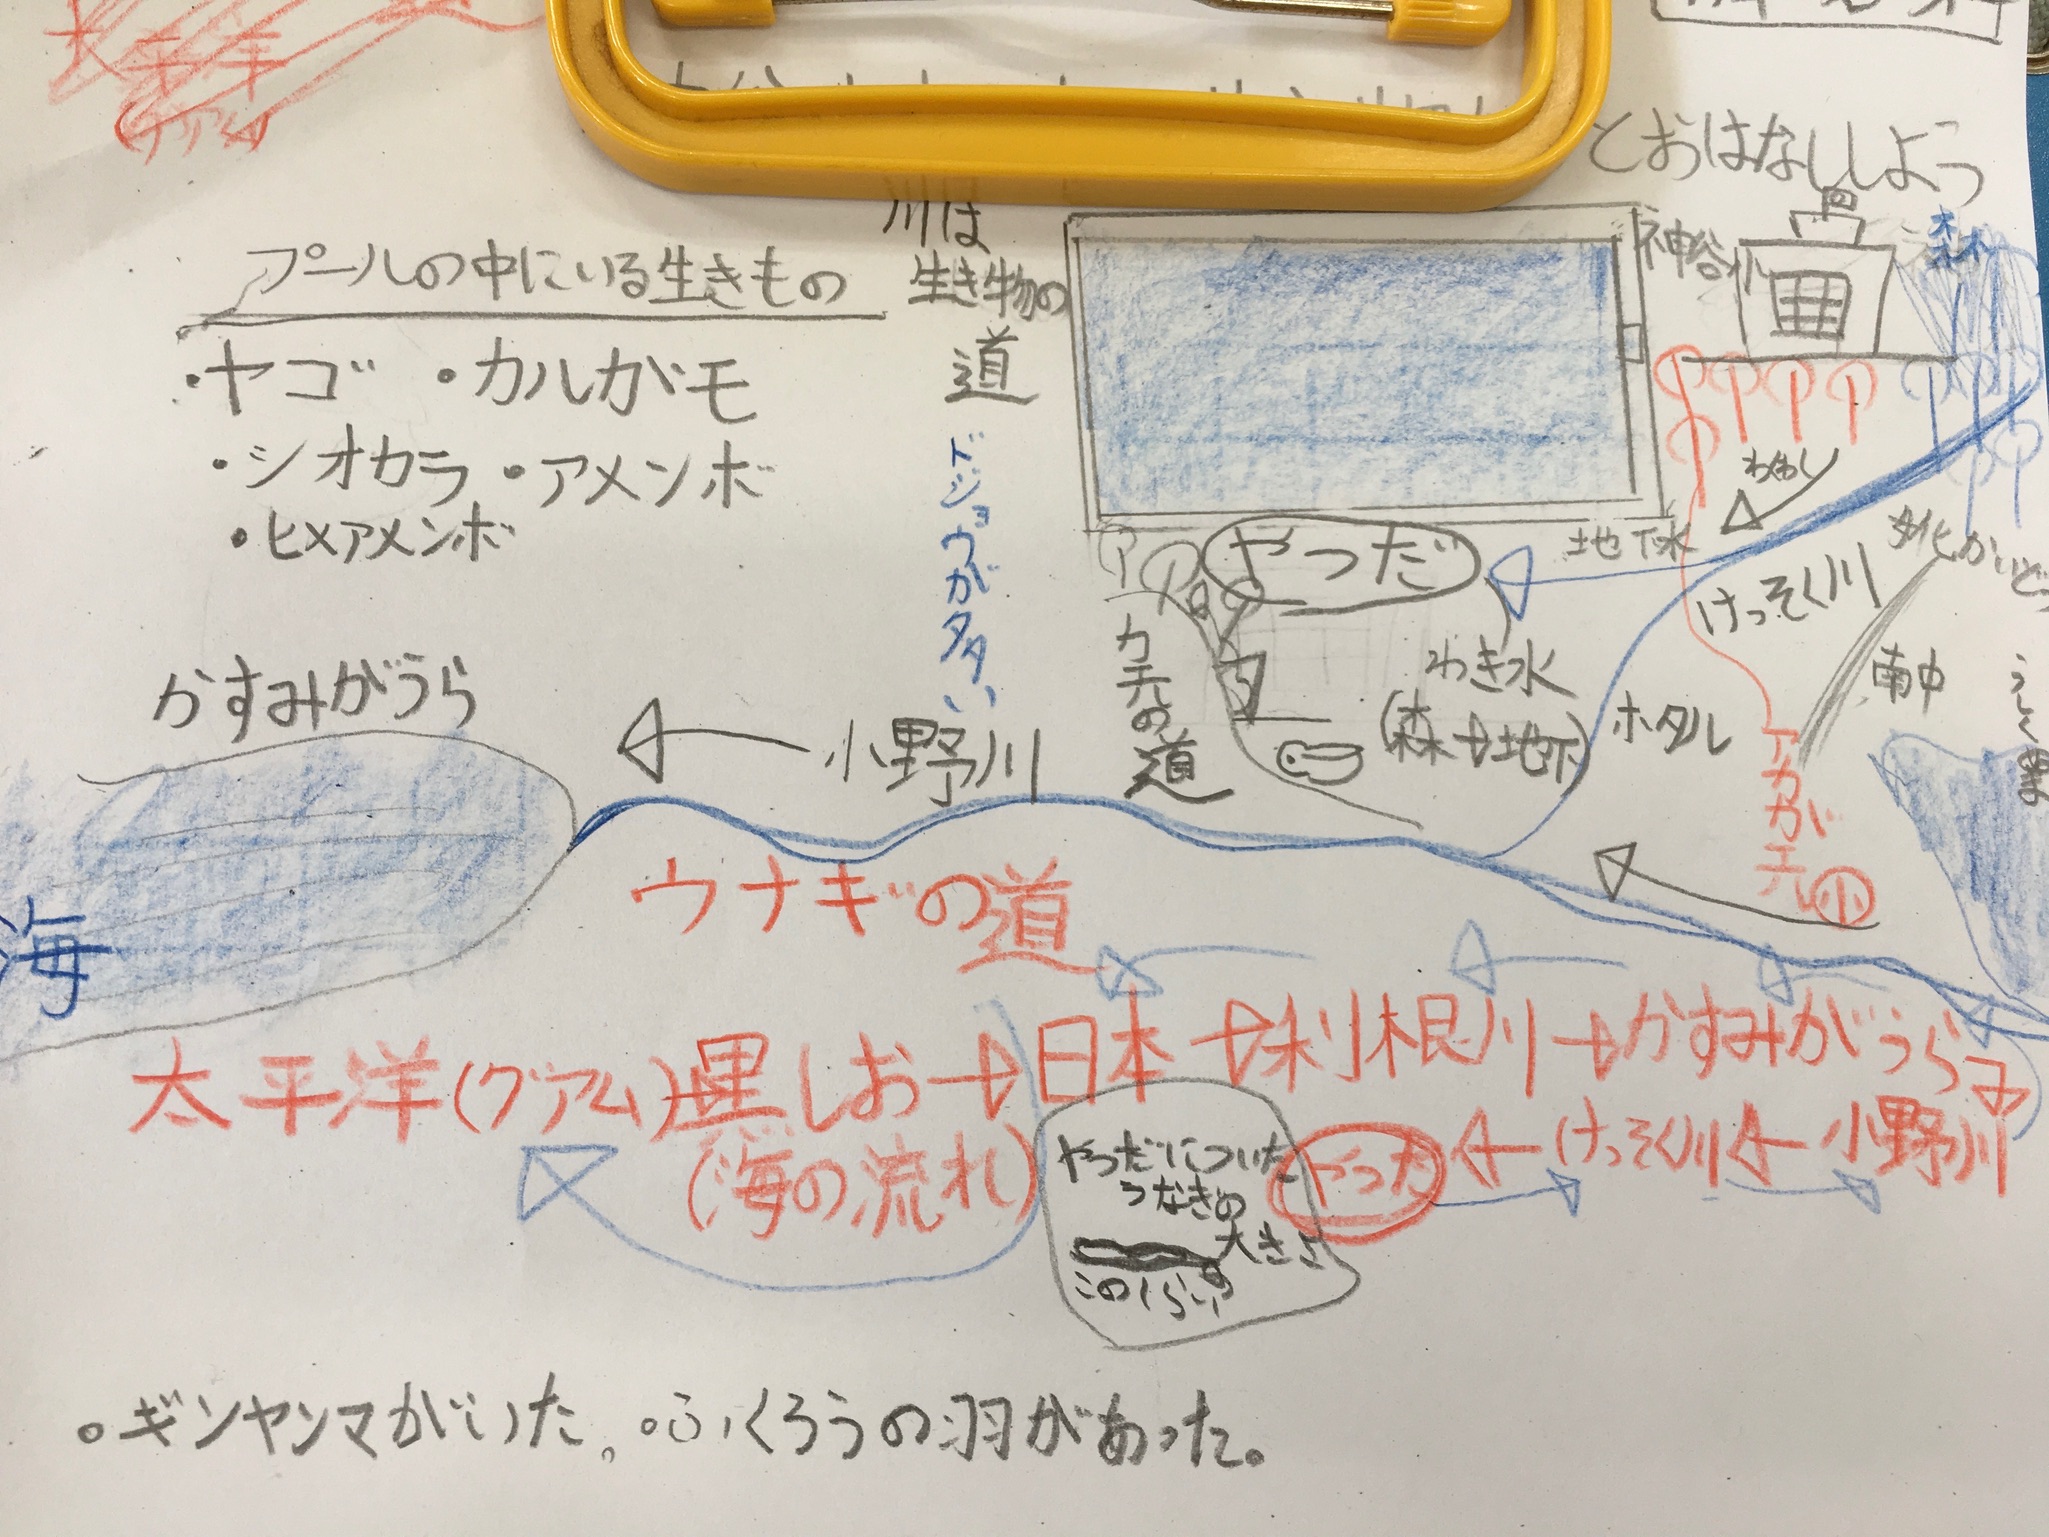 太平洋
グアム
とおはなししよう
川は
生き物の
道
プールの中にいる生きもの
・ヤゴ ・カルがモ
・シオカラ ・アメンボ
・ヒメアメンボ
ドジョウが多い
神谷小
森林
やつだ
地下水
けっそく川
わき水
(森→地下)
ホタル
南中
カモの
道
アカガエル
かすみがうら
小野川
海
ウナギの道
太平洋(グアム)黒しお→日本→利根川→かすみがうら
(海の流れ)
やつだ←けっそく川←小野川
やつだについた
うなぎの
大きさ
このくらい
○ギンヤンマがいた。○ふくろうの羽があった。